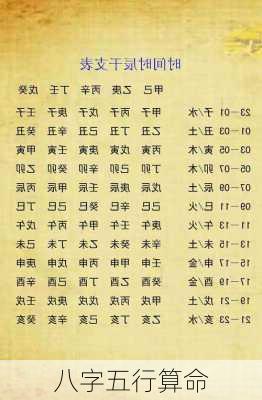 时间时辰干支表
甲己 乙庚 丙辛 丁壬 戊癸
23—01 子/水 甲子 丙子 戊子 庚子 壬子
01—03 丑/土 乙丑 丁丑 己丑 辛丑 癸丑
03—05 寅/木 丙寅 戊寅 庚寅 壬寅 甲寅
05—07 卯/木 丁卯 己卯 辛卯 癸卯 乙卯
07—09 辰/土 戊辰 庚辰 壬辰 甲辰 丙辰
09—11 巳/火 己巳 辛巳 癸巳 乙巳 丁巳
11—13 午/火 庚午 壬午 甲午 丙午 戊午
13—15 未/土 辛未 癸未 乙未 丁未 己未
15—17 申/金 壬申 甲申 丙申 戊申 庚申
17—19 酉/金 癸酉 乙酉 丁酉 己酉 辛酉
19—21 戌/土 甲戌 丙戌 戊戌 庚戌 壬戌
21—23 亥/水 乙亥 丁亥 己亥 辛亥 癸亥
八字五行算命